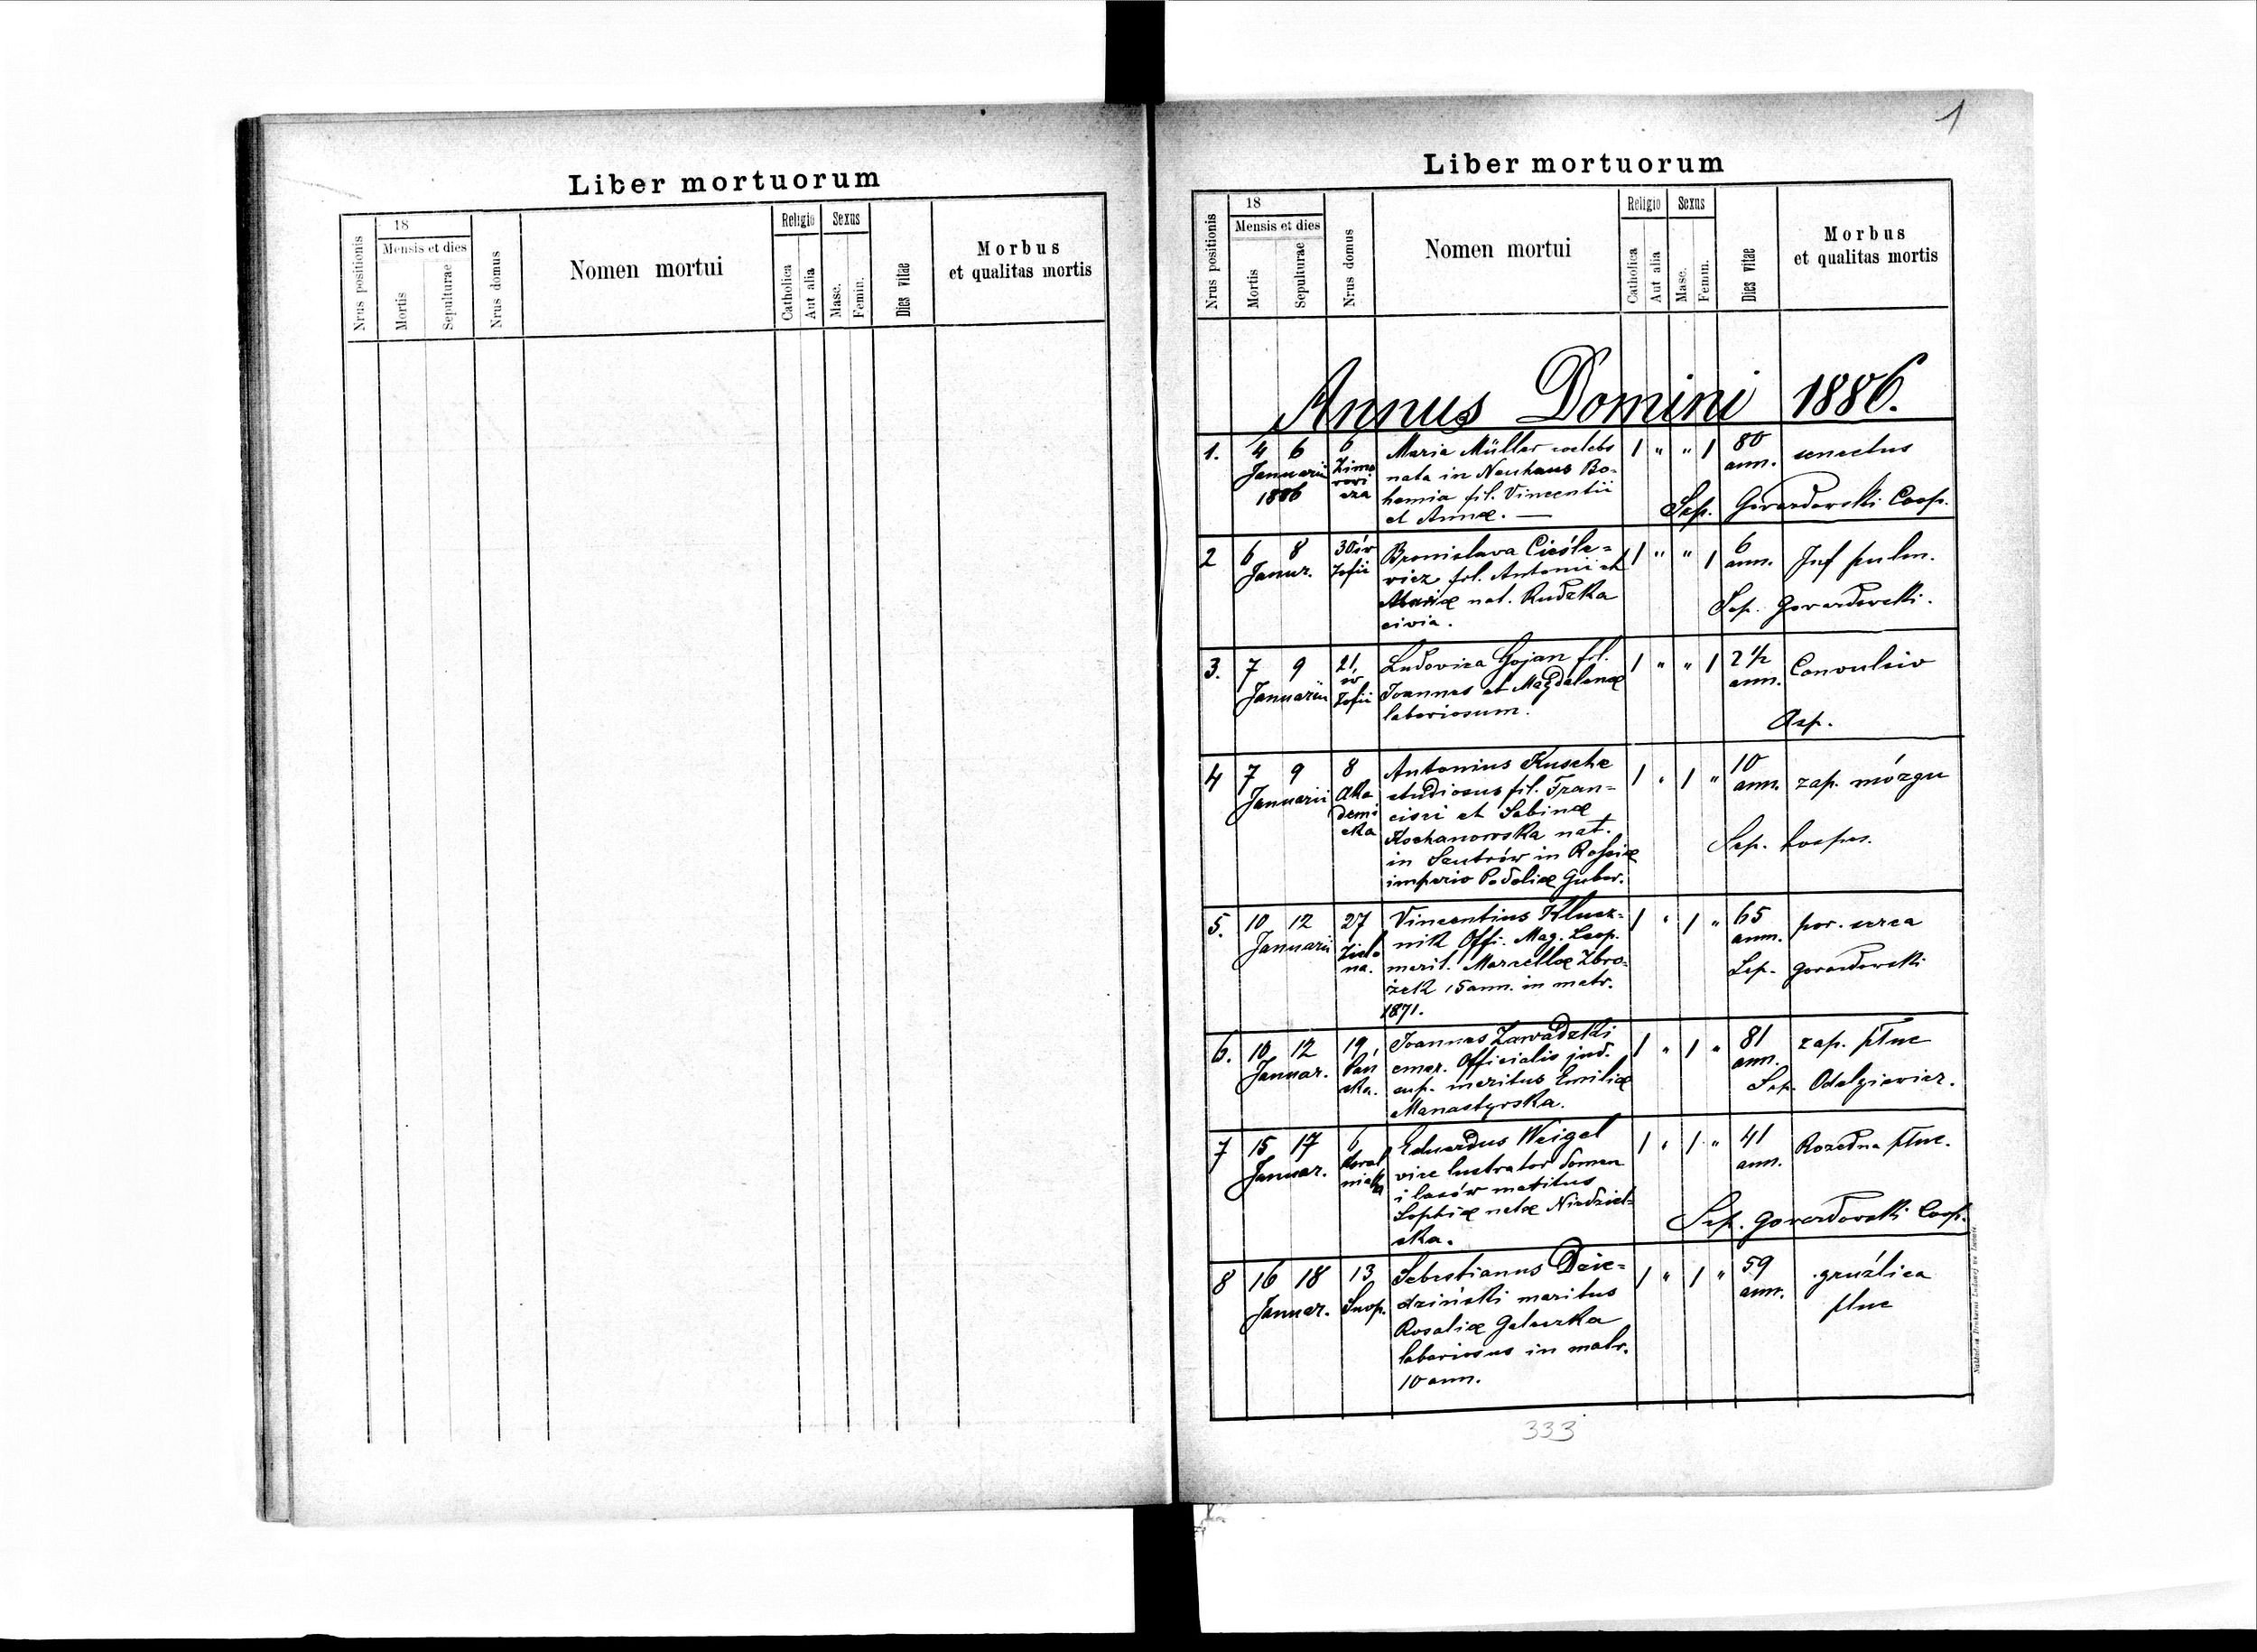 Liber mortuorum
Nrus positionis
18
Mensis et dies
Mortis
Sepulturae
Nrus domus
Nomen mortui
Religio
Catholica
Aut alia
Sexus
Masc.
Femin.
Dies vitae
Morbus
et qualitas mortis
1
Liber mortuorum
Nrus positionis
18
Mensis et dies
Mortis
Sepulturae
Nrus domus
Nomen mortui
Religio
Catholica
Aut alia
Sexus
Masc.
Femin.
Dies vitae
Morbus
et qualitas mortis
Annus Domini 1886.
1. 4 6 6 Maria Müller coelebs 1 " " 1 80 senectus
Januarii Zimo nata in Neuhaus Bo- ann.
1886 rowi hemia fil. Vincentii
cza et Annæ. — Sep. Gorardowski Coop.
2 6 8 30 św Bronislava Cieśle= 1 " " 1 6 Inf pulm.
Januar. Zofii wicz fil. Antonii et ann.
Mariæ nat. Rudzka Sep. Gorardowski.
civia.
3. 7 9 21, Ludovica Gojan fil. 1 " " 1 2 1/2 Convulsio
Januarii św Joannes et Magdalenæ ann.
Zofii laboriosum. Asp.
4 7 9 8 Antonius Kusche 1 " 1 " 10 zap. mózgu
Januarii Aka studiosus fil. Fran= ann.
demi cisci et Sabinæ
cka Kochanowska nat. Sep.
in in Rossiæ
imperio Podoliæ Guber.
5. 10 12 27 Vincentius Klucz- 1 " 1 " 65 por. serca
Januarii Zielo nik Offi. Mag. Leop. ann.
na. marit. Marcellæ Zbro- Sep. Gorardowski
żek 15 ann. in matr.
1871.
6. 10 12 19, Joannes Zawadzki 1 " 1 " 81 zap. płuc
Januar. Pań emer. Officialis jud. ann.
ska. sup. maritus Emiliæ Sep. Odelgiewicz.
Manastyrska.
7 15 17 6 Eduardus Weigel 1 " 1 " 41 Rozedma płuc.
Januar. Koral vice lustrator domen ann.
nicka i lasów maritus
Sophiæ natæ Niedziel- Sep. Gorardowski Coop.
ska.
8 16 18 13 Sebastianus Dzie= 1 " 1 " 59 gruźlica
Januar. Snop. dziński maritus ann. płuc
Rosaliæ Galuszka
laboriosus in matr.
10 ann.
333